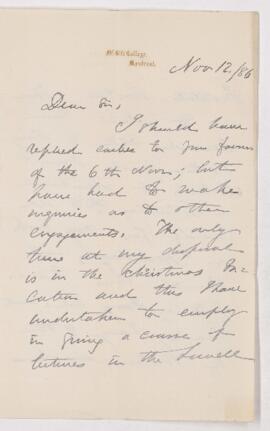 McGill College,
Montreal.
Nov 12/86
Dear Sir,
I should have
replied earlier to your favour
of the 6th Novr; but
have had to make
inquiries as to other
engagements. The only
time at my disposal
is in the Christmas Va-
cation and this I have
undertaken to employ
in giving a course of
lectures in the Lowell